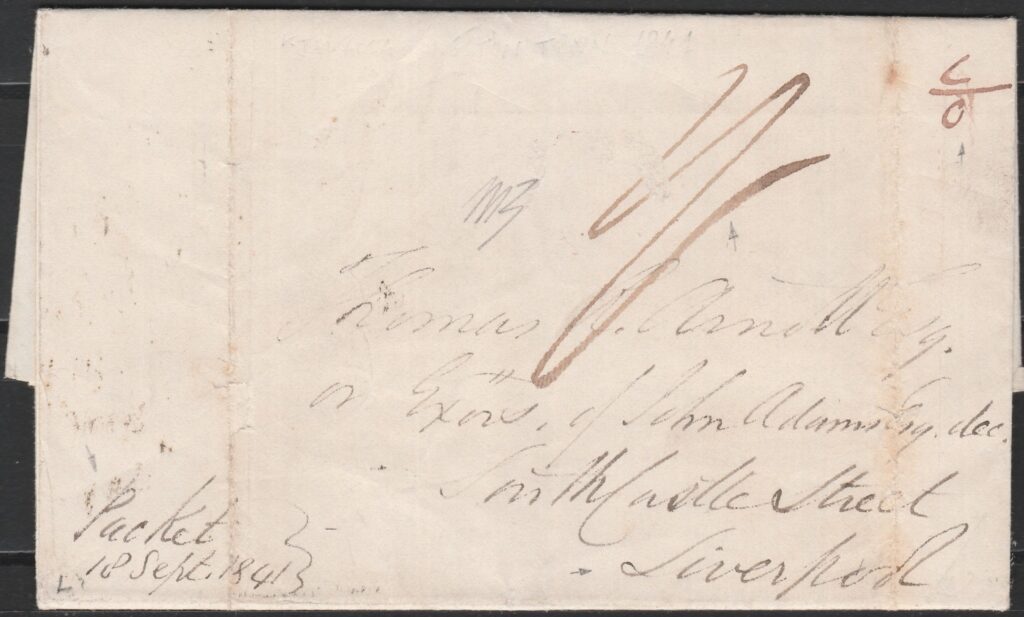 C/O
1/
Thomas A. Arnott Esq.
or Exors. of John Adams Esq. dec.
South Castle Street
Liverpool
Packet
18 Sept. 1841